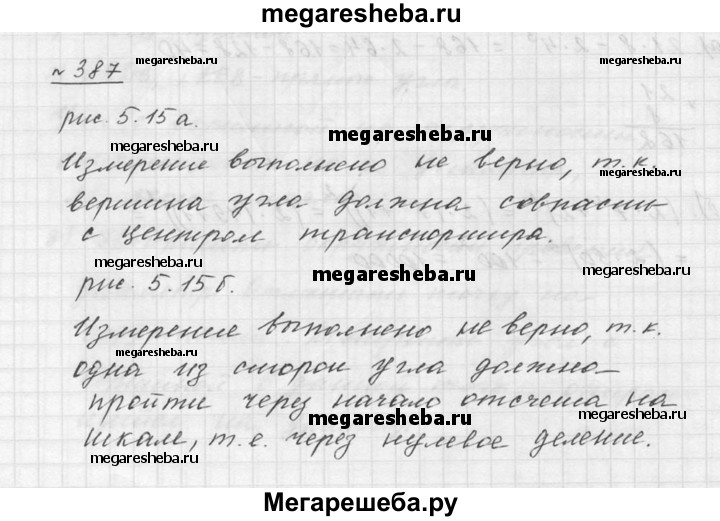 megaresheba.ru
№ 387 megaresheba.ru
рис. 5.15а. megaresheba.ru megaresheba.ru
Измерение выполнено не верно, т.к.
megaresheba.ru megaresheba.ru
вершина угла должна совпасть
с центром транспортира.
megaresheba.ru megaresheba.ru megaresheba.ru
рис. 5.15б.
Измерение выполнено не верно, т.к.
megaresheba.ru megaresheba.ru
одна из сторон угла должна
пройти через начало отсчета на
megaresheba.ru
шкале, т.е. через нулевое деление.
megaresheba.ru megaresheba.ru
Мегарешеба.ру